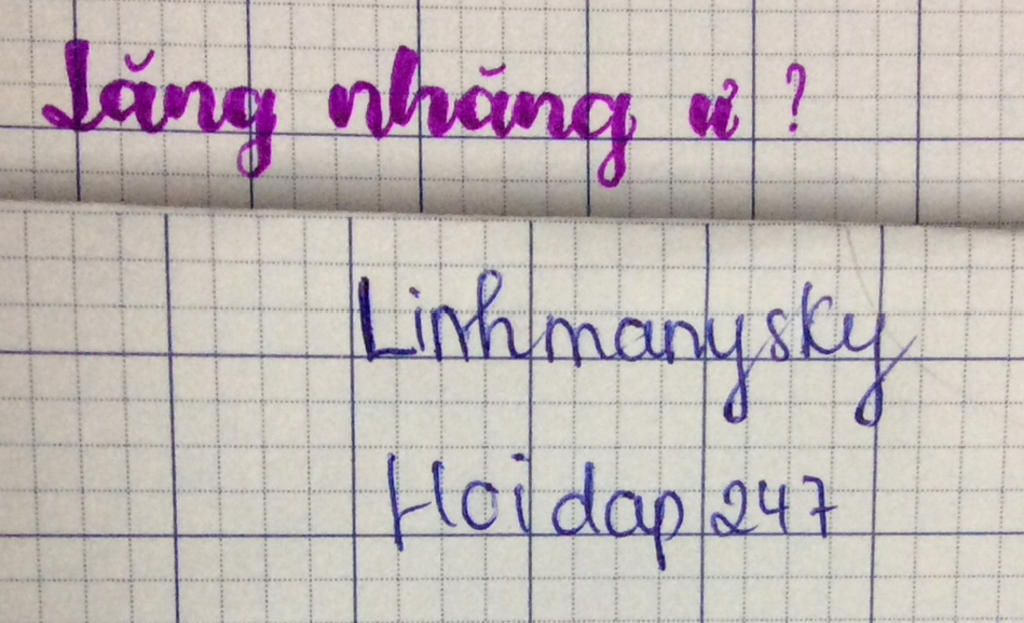 Lăng nhăng ư ?
Linhmanysky
Hoidap 247